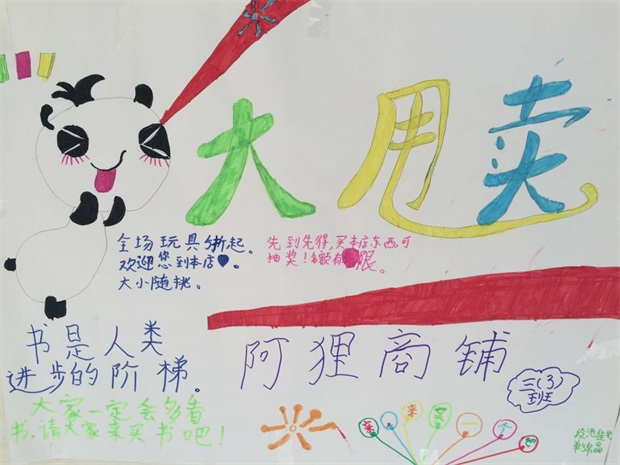 大甩卖
全场玩具5折起。
欢迎您到本店。
大小随挑。
先到先得,买本店东西可
抽奖!名额有限。
书是人类
进步的阶梯。
阿狸商铺
三(3)
班
大家一定会多看
书,请大家来买书吧!
亲来买一个吧